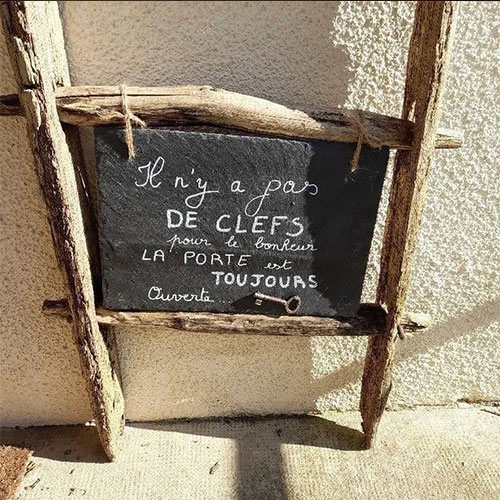 Il n'y a pas
DE CLEFS
pour le bonheur
LA PORTE est
TOUJOURS
Ouverte...